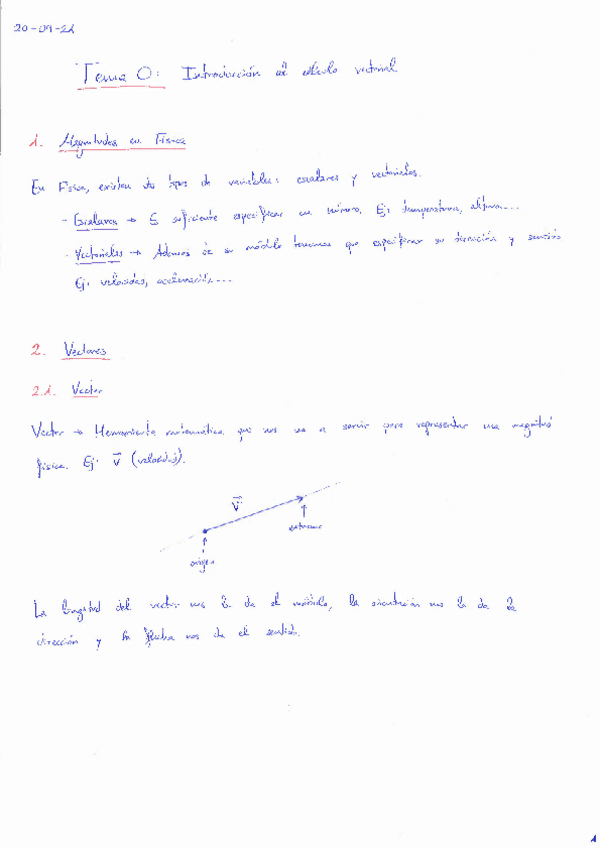 20-09-21
Tema 0: Introducción al cálculo vectorial
1. Magnitudes en Física
En Física, existen dos tipos de variables: escalares y vectoriales.
- Escalares → Es suficiente especificar un número. Ej: temperatura, altura...
- Vectoriales → Además de su módulo tenemos que especificar su dirección y sentido
Ej: velocidad, aceleración...
2. Vectores
2.1. Vector
Vector → Herramienta matemática que nos va a servir para representar una magnitud
física. Ej: v⃗ (velocidad).
v⃗
extremo
origen
La longitud del vector nos la da el módulo, la orientación nos la da la
dirección y la flecha nos da el sentido.
1